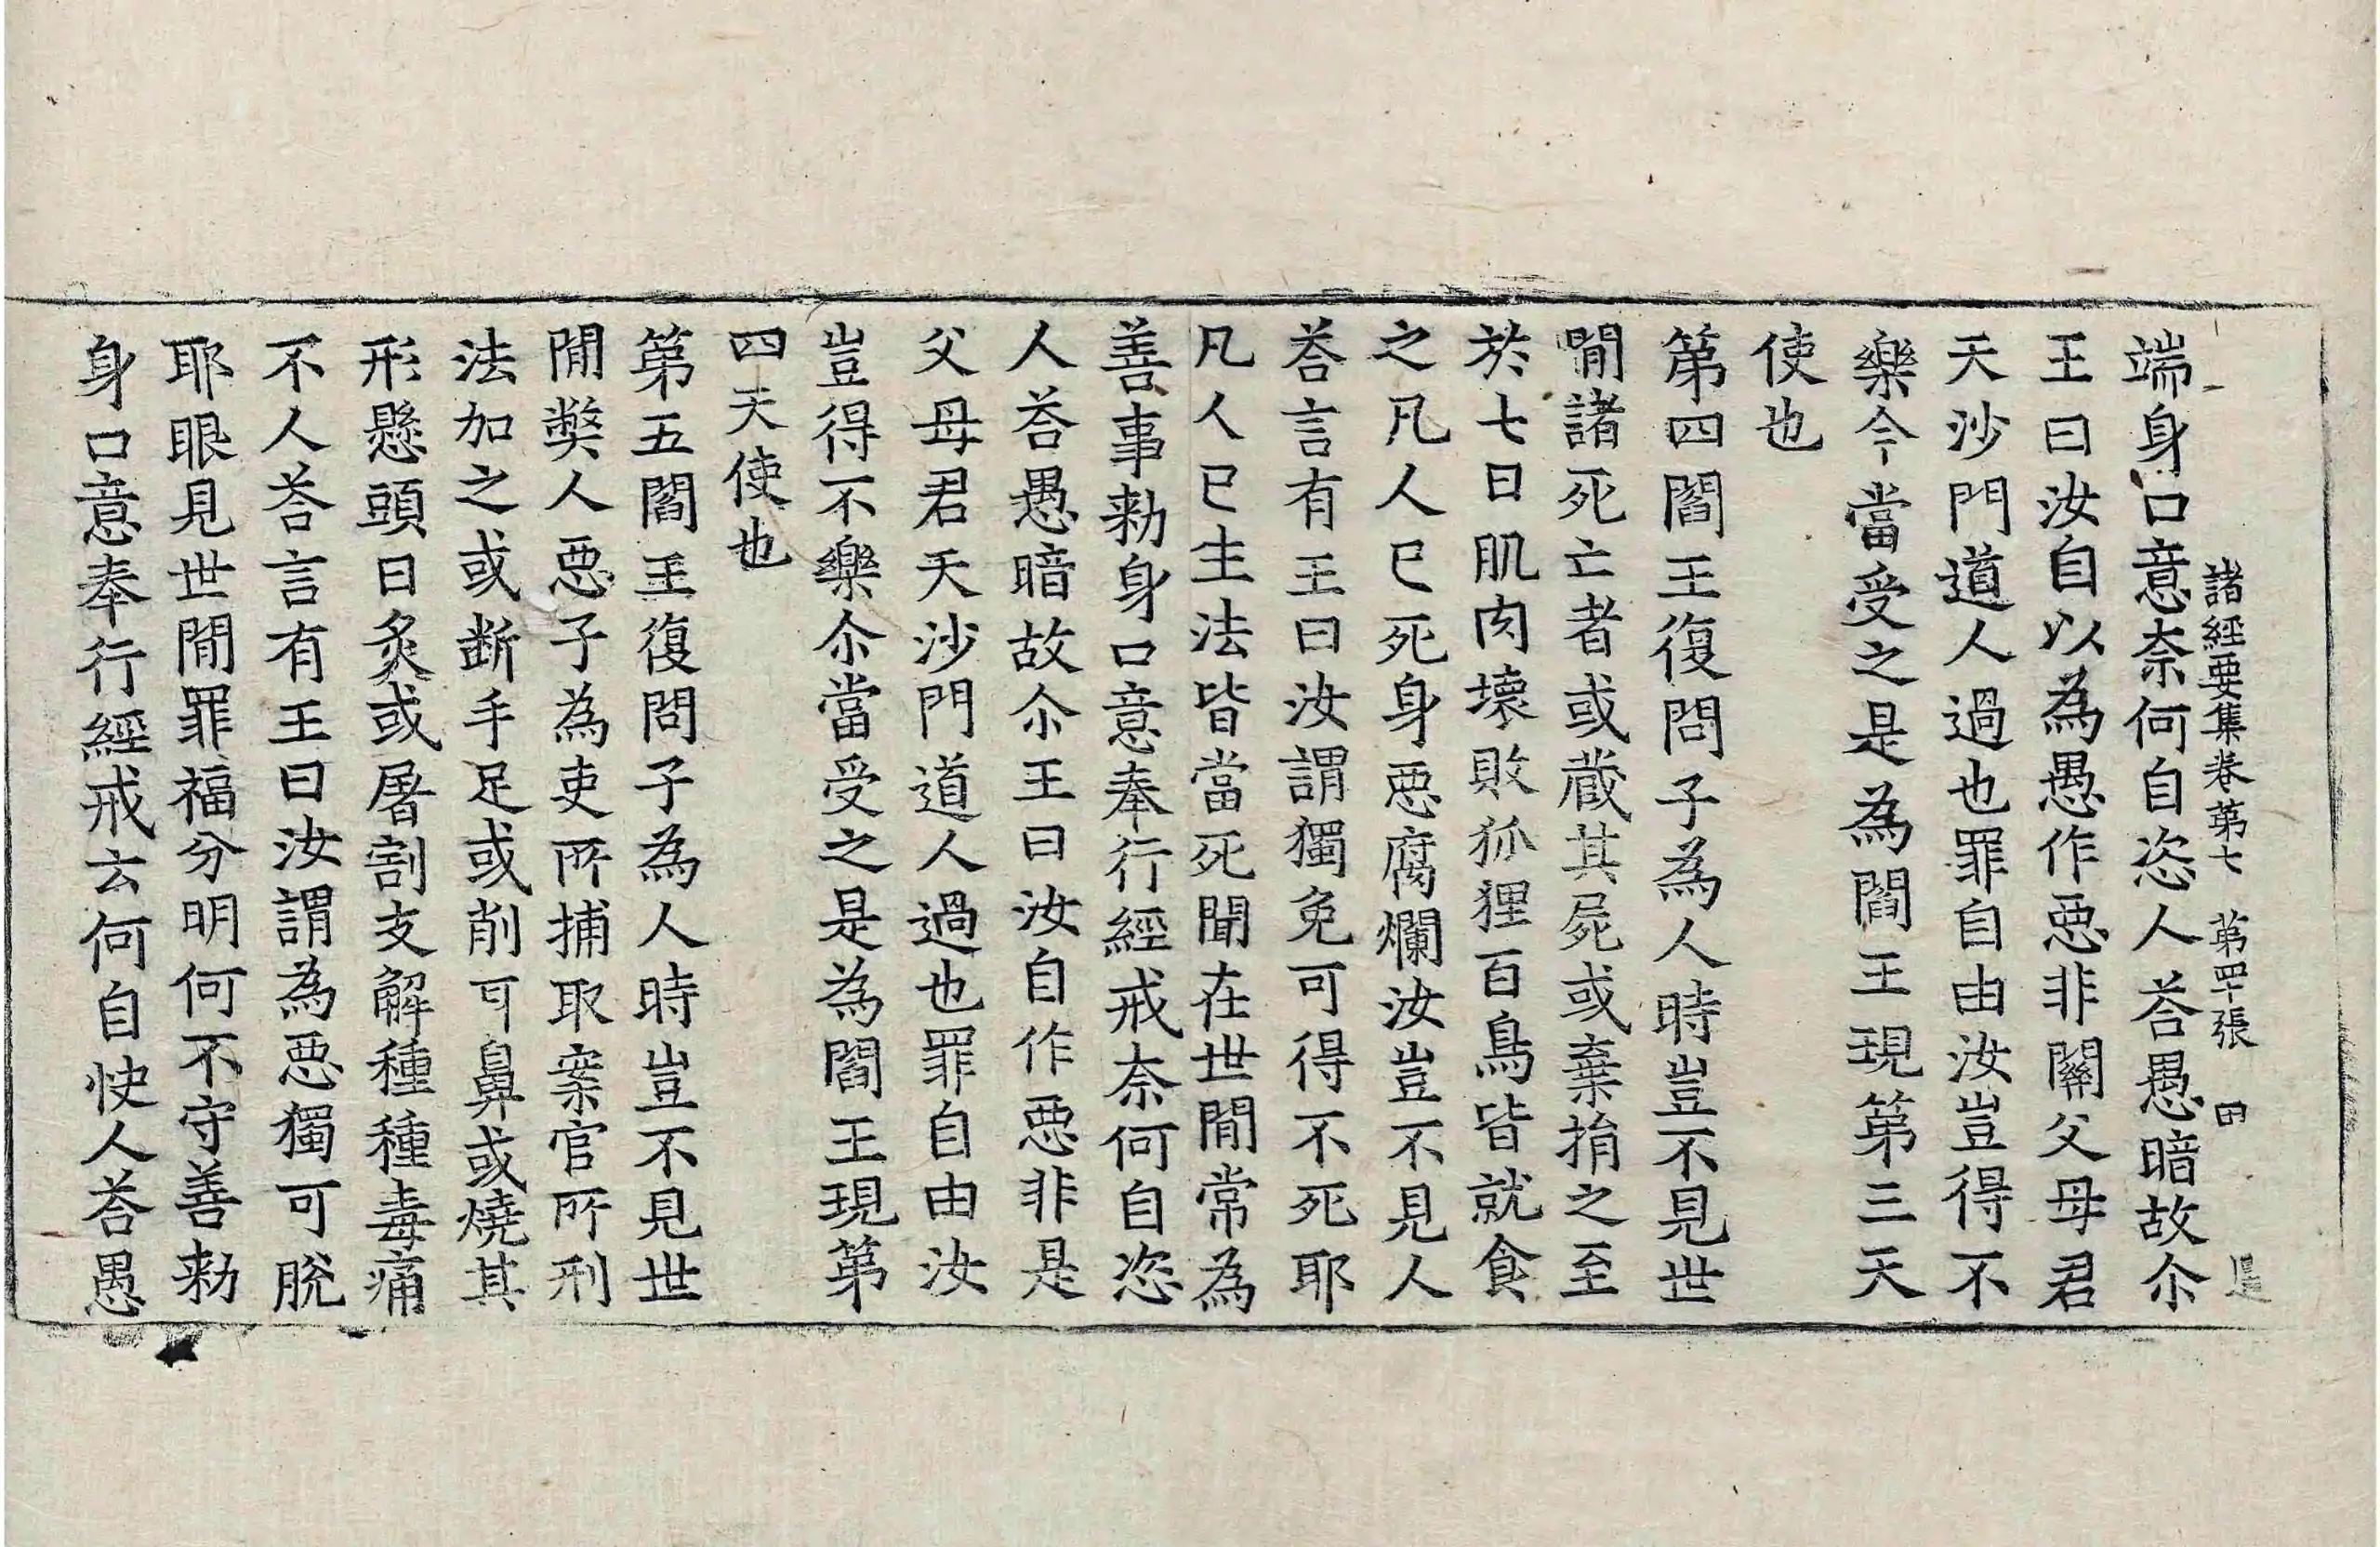 諸經要集卷第七　第四十張　田
端身口意奈何自恣人荅愚暗故尒
王曰汝自以為愚作惡非關父母君
天沙門道人過也罪自由汝豈得不
樂今當受之是為閻王現第三天
使也
第四閻王復問子為人時豈不見世
間諸死亡者或藏其屍或棄捐之至
於七日肌肉壞敗狐狸百鳥皆就食
之凡人已死身惡腐爛汝豈不見人
荅言有王曰汝謂獨免可得不死耶
凡人已生法皆當死聞在世間常為
善事勑身口意奉行經戒奈何自恣
人荅愚暗故尒王曰汝自作惡非是
父母君天沙門道人過也罪自由汝
豈得不樂尒當受之是為閻王現第
四天使也
第五閻王復問子為人時豈不見世
間獘人惡子為吏所捕取案官所刑
法加之或断手足或削耳鼻或燒其
形懸頭日炙或屠割支解種種毒痛
不人荅言有王曰汝謂為惡獨可脫
耶眼見世間罪福分明何不守善勑
身口意奉行經戒云何自快人荅愚